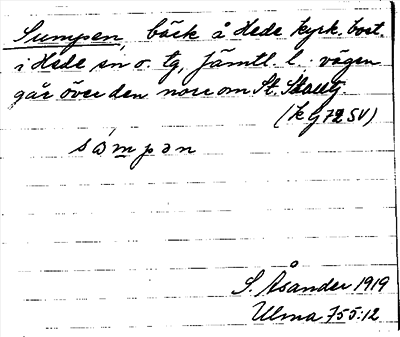 Sumpen, bäck å Hede kyrk. bost.
i Hede sn o. tg, Jämtl. l. vägen
går över den norr om St.
(K G 72 SV)
sómpən
S. Åsander 1919
Ulma 755:12